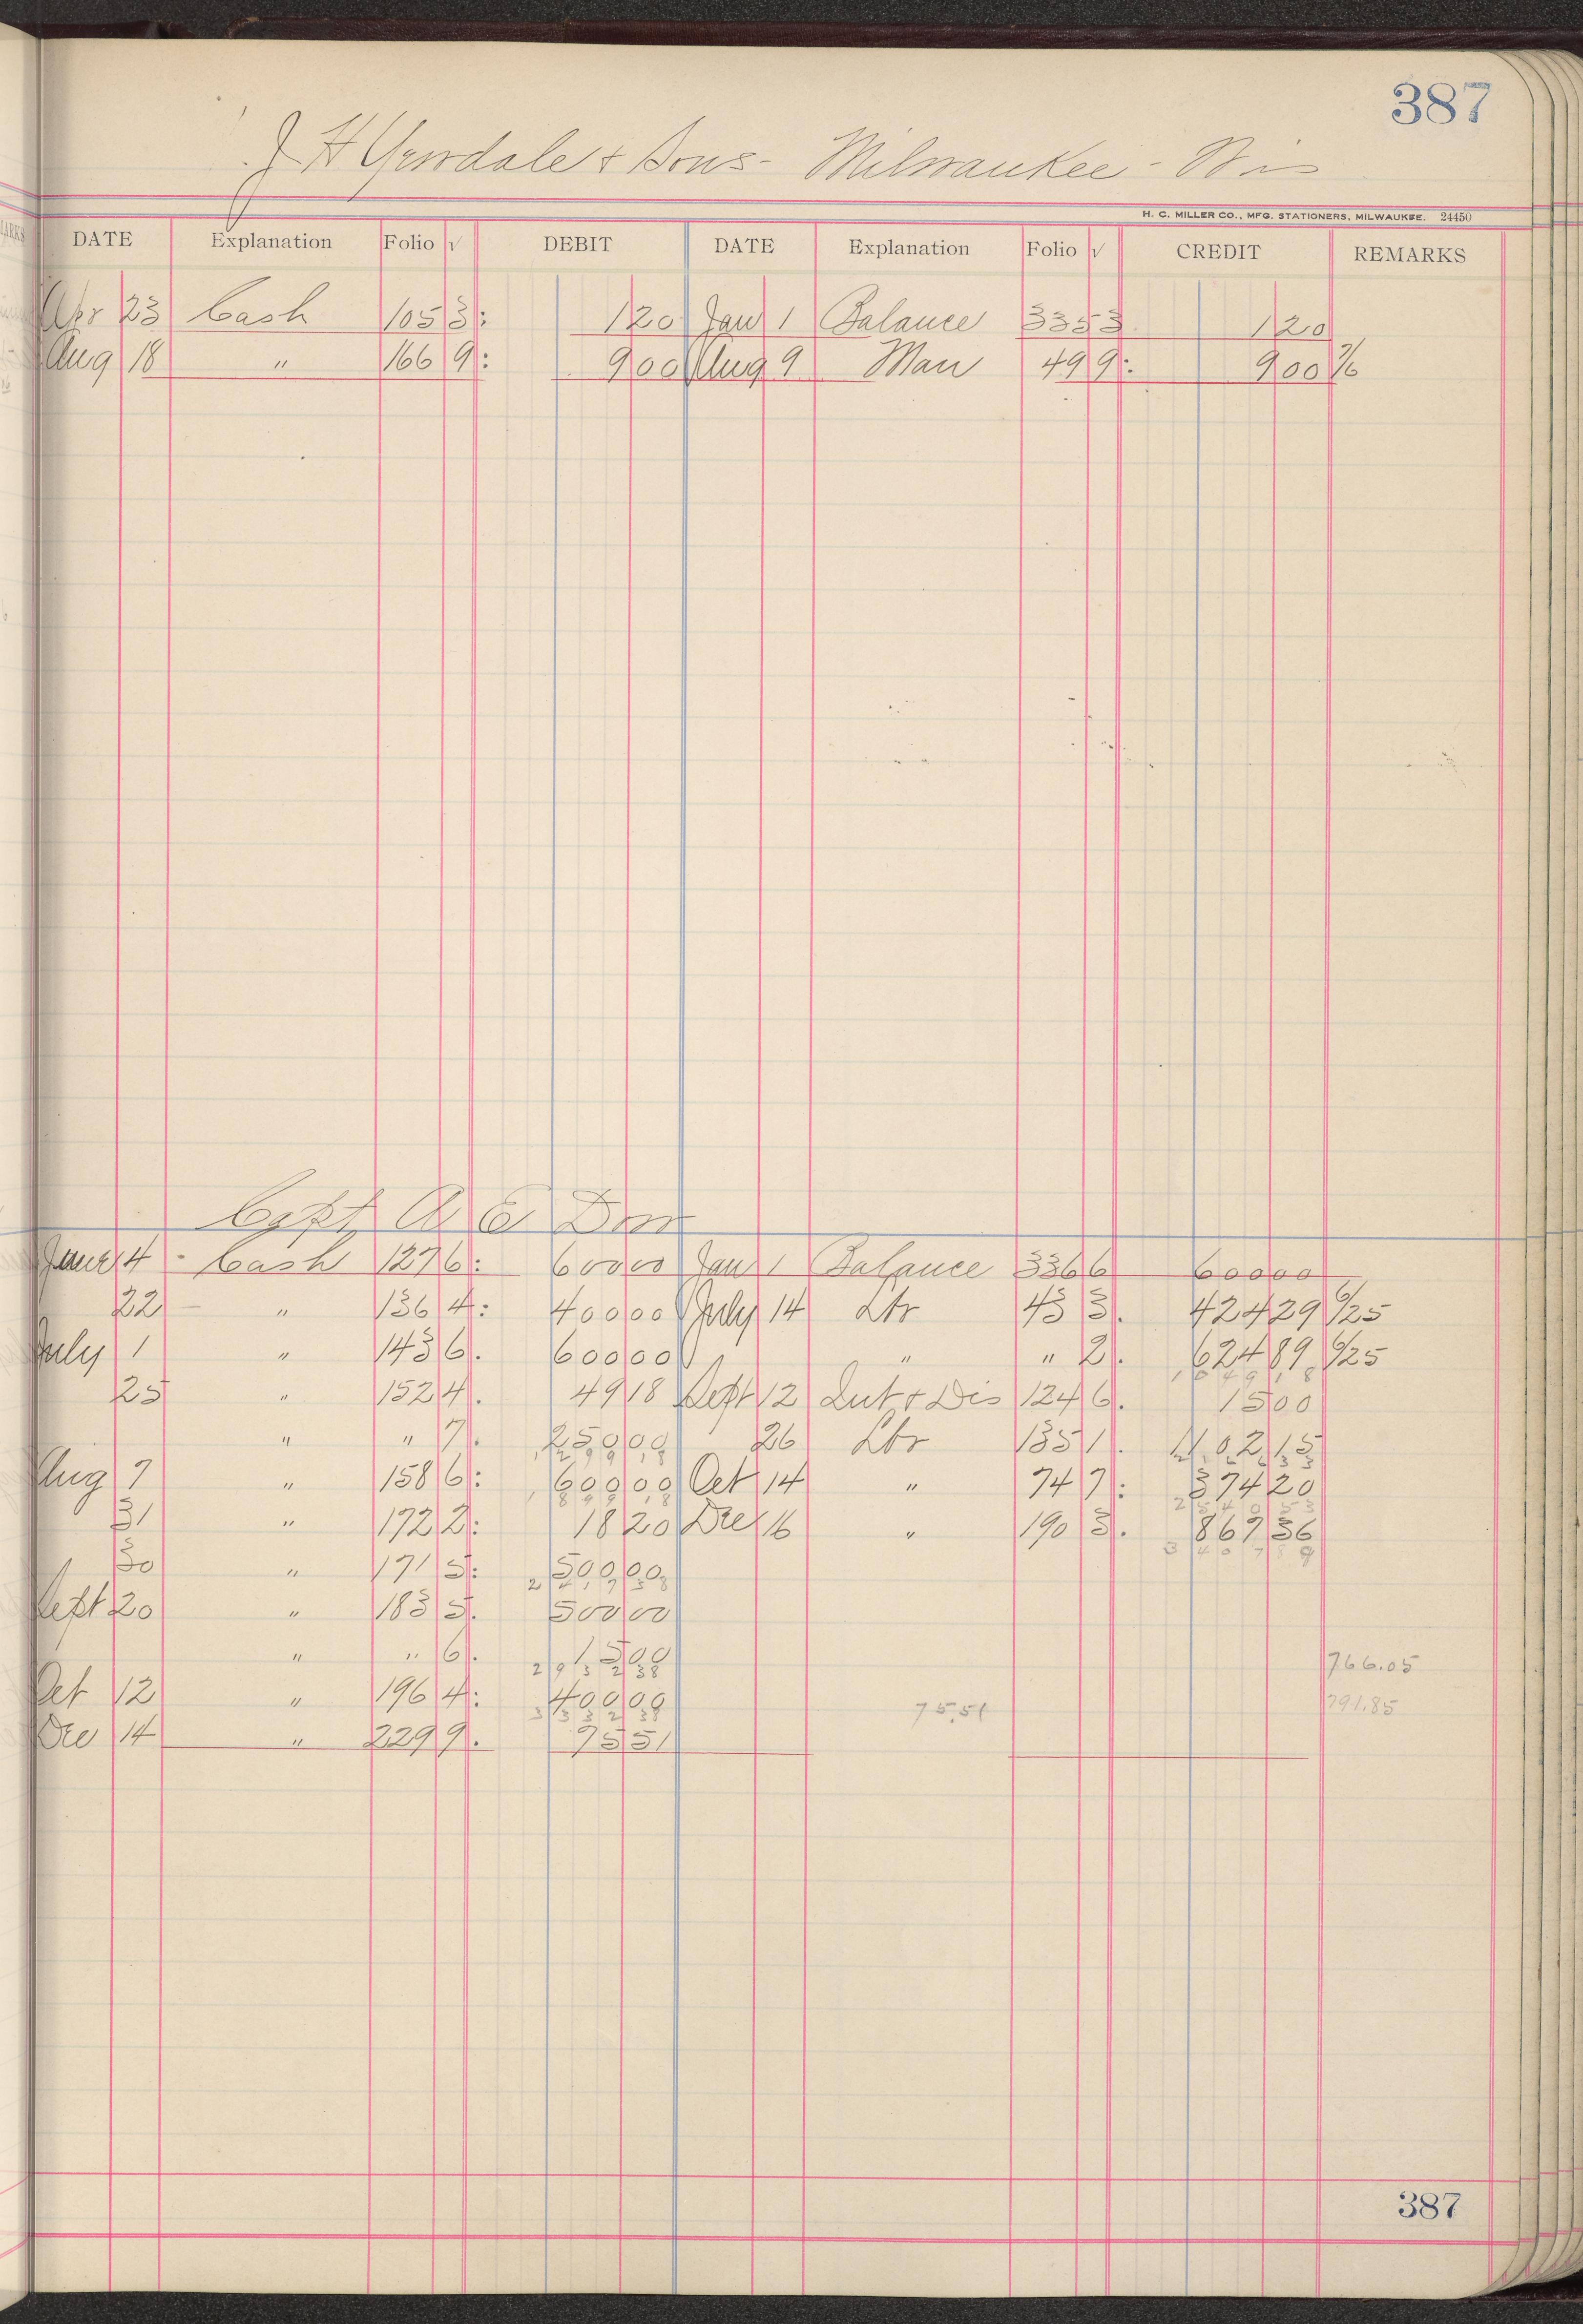 387
J H Yewdale & Sons - Milwaukee - Wis
H. C. MILLER CO., MFG. STATIONERS, MILWAUKEE. 24450
DATE Explanation Folio √ DEBIT DATE Explanation Folio √ CREDIT REMARKS
Apr 23 Cash 105 3: 1 20 Jan 1 Balance 335 3 1 20
Aug 18 " 166 9: 9 00 Aug 9 Man 49 9: 9 00 7/6
Capt A E Dow
June 4 - Cash 127 6: 600 00 Jan 1 Balance 336 6 600 00
22 - " 136 4: 400 00 July 14 Lbr 43 3. 424 29 6/25
July 1 " 143 6. 600 00 " " 2. 624 89 6/25
1 0 4 9 1 8
25 " 152 4. 49 18 Sept 12 Int & Dis 124 6. 15 00
" " 7. 250 00 26 Lbr 135 1. 1102 15
1 2 9 9 1 8
Aug 7 " 158 6: 600 00 Oct 14 " 74 7: 374 20
1 8 9 9 1 8 2 5 4 0 5 3
31 " 172 2: 18 20 Dec 16 " 190 3. 867 36
3 4 0 7 8 9
30 " 171 5: 500 00
2 4 1 7 3 8
Sept 20 " 183 5. 500 00
" " 6. 15 00
2 9 3 2 3 8 766.05
Oct 12 " 196 4: 400 00 791.85
3 3 3 2 3 8 75.51
Dec 14 " 229 9. 75 51
387